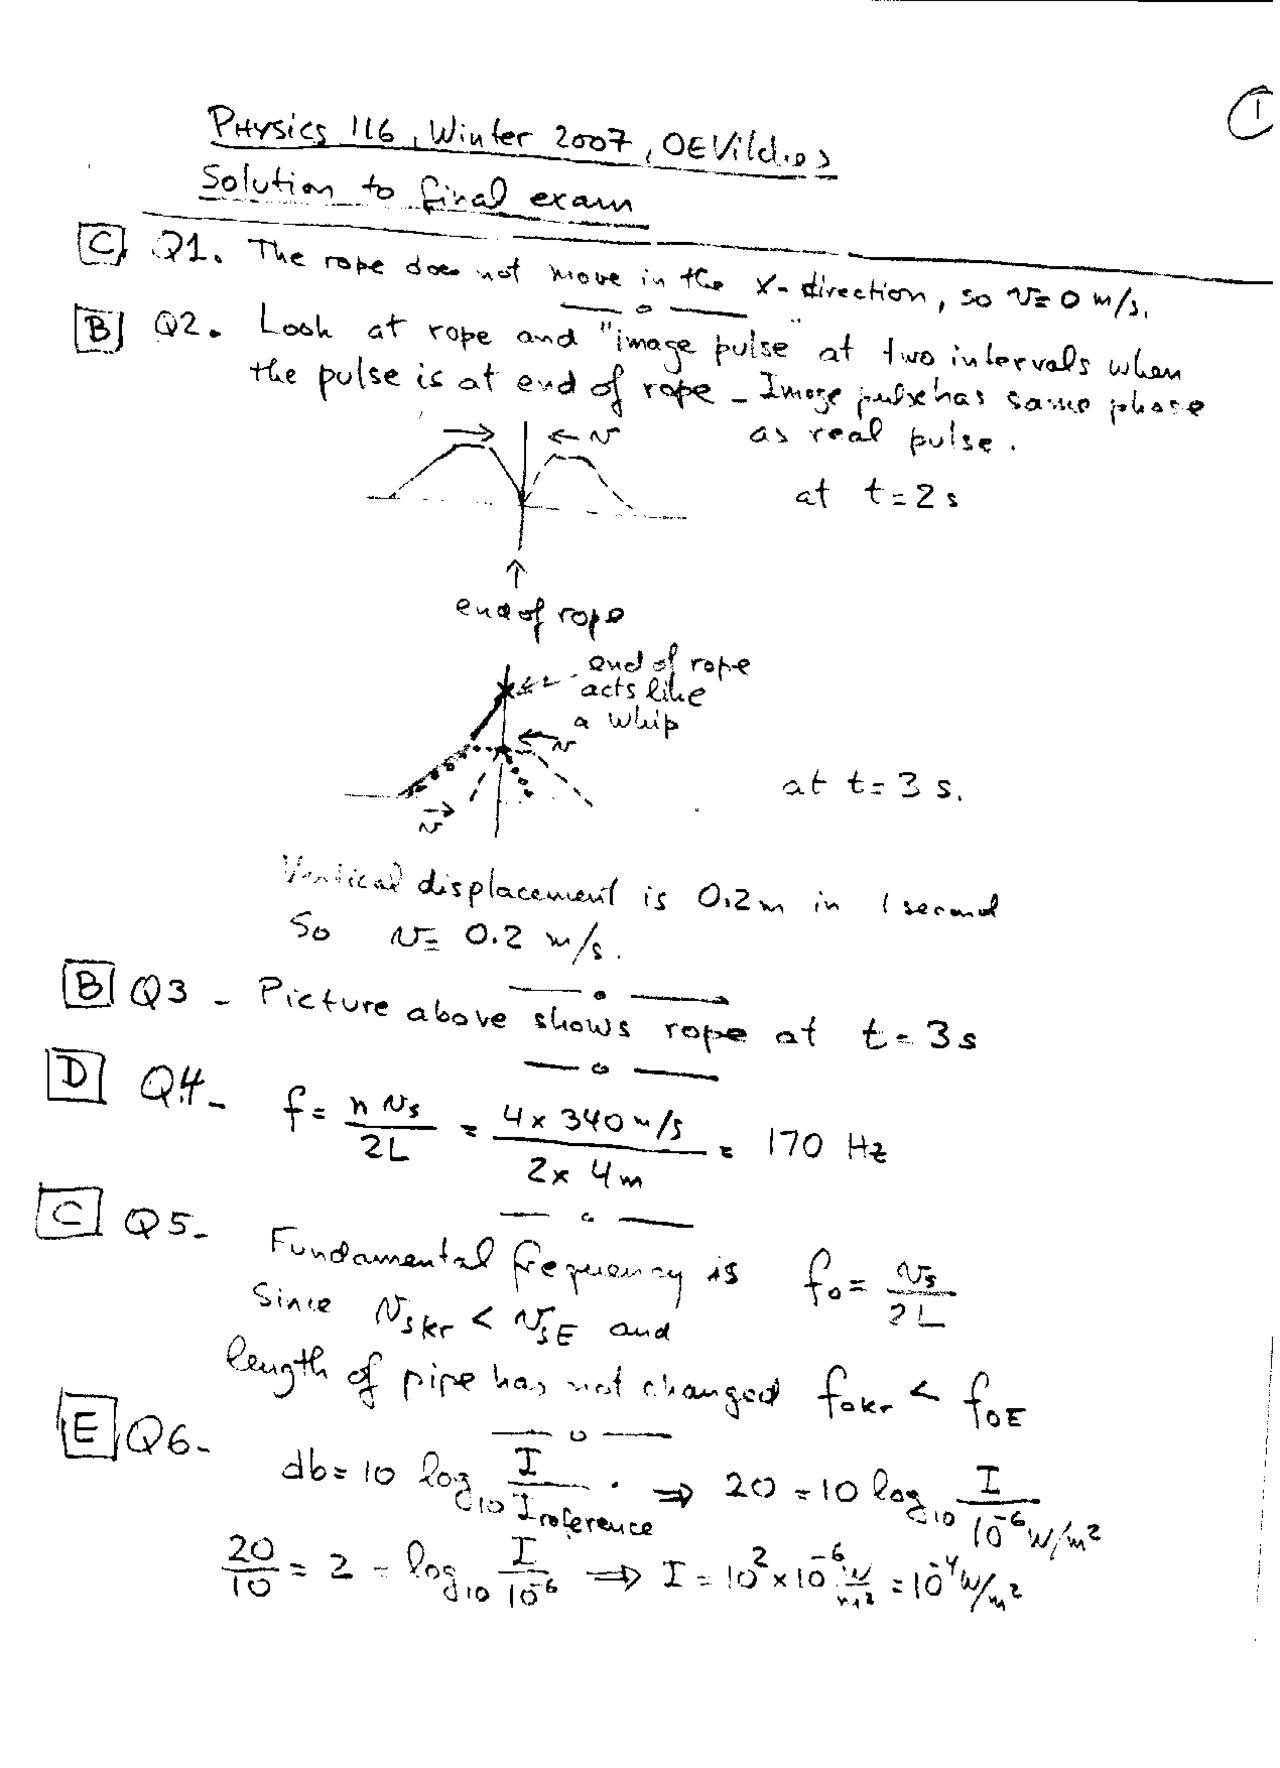 1
Physics 116, Winter 2007, OEVilches
Solution to final exam
C Q1. The rope does not move in the x-direction, so v=0 m/s.
B Q2. Look at rope and "image pulse" at two intervals when
the pulse is at end of rope - Image pulse has same phase
as real pulse.
← v
at t=2s
↑
end of rope
end of rope
acts like
a whip
v
at t=3 s.
v
Vertical displacement is 0.2m in 1 second
So v= 0.2 m/s.
B Q3 - Picture above shows rope at t=3s
D Q4- f= n vs / 2L = 4x 340 m/s / 2x 4m = 170 Hz
C Q5- Fundamental frequency is f0= vs / 2L
Since vskr < vsE and
length of pipe has not changed f0kr < f0E
E Q6- db= 10 log10 I / Ireference . ⇒ 20 = 10 log10 I / 10^-6 W/m^2
20/10 = 2 = log10 I / 10^-6 ⇒ I = 10^2 x 10^-6 W/m^2 = 10^-4 W/m^2